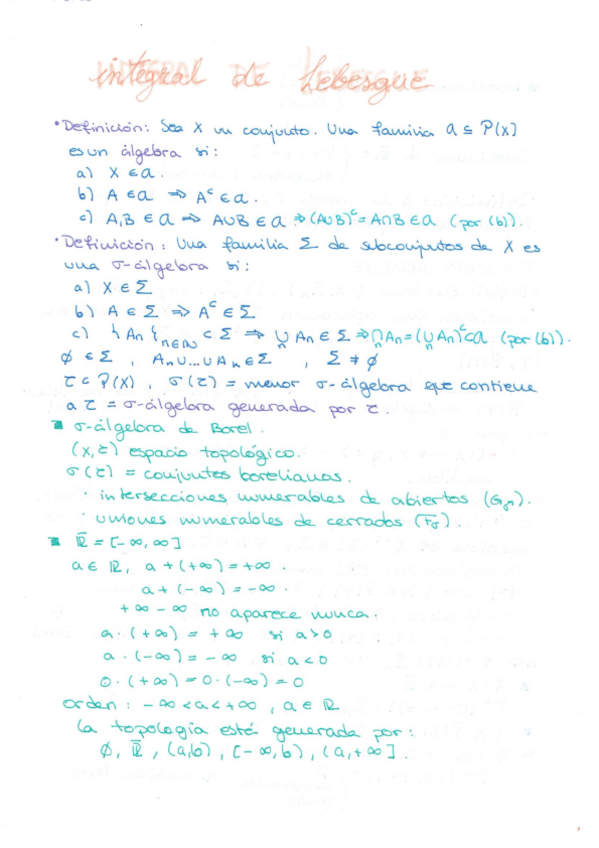 integral de Lebesgue
• Definición: Sea X un conjunto. Una familia a ⊆ P(X)
es un álgebra si:
a) X ∈ a.
b) A ∈ a ⇒ Aᶜ ∈ a.
c) A,B ∈ a ⇒ A∪B ∈ a. ⇒ (A∪B)ᶜ = A∩B ∈ a (por (b)).
• Definición: Una familia Σ de subconjuntos de X es
una σ-álgebra si:
a) X ∈ Σ
b) A ∈ Σ ⇒ Aᶜ ∈ Σ
c) {An}n∈N ⊂ Σ ⇒ ∪n An ∈ Σ ⇒ ∩n An = (∪n An)ᶜ ⊂ a (por (b)).
∅ ∈ Σ , A∪...∪An ∈ Σ , Σ ≠ ∅
τ ⊂ P(X) , σ(τ) = menor σ-álgebra que contiene
a τ = σ-álgebra generada por τ.
σ-álgebra de Borel.
(X,τ) espacio topológico.
σ(τ) = conjuntos borelianos.
· intersecciones numerables de abiertos (Gσ).
· uniones numerables de cerrados (Fσ).
R̄ = [-∞,∞]
a ∈ R, a + (+∞) = +∞ .
a + (-∞) = -∞ .
+∞ - ∞ no aparece nunca.
a · (+∞) = +∞ si a > 0
a · (-∞) = -∞ si a < 0
0 · (+∞) = 0 · (-∞) = 0
orden: -∞ < a < +∞ , a ∈ R
la topología está generada por:
∅, R̄, (a,b), [-∞,b), (a,+∞].